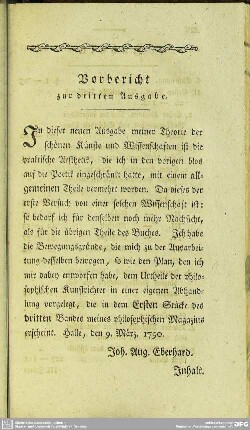 Vorbericht
zur dritten Ausgabe.
In dieser neuen Ausgabe meiner Theorie der
schönen Künste und Wissenschaften ist die
praktische Aesthetik, die ich in den vorigen blos
auf die Poetik eingeschränkt hatte, mit einem all-
gemeinen Theile vermehrt worden. Da dieses der
erste Versuch von einer solchen Wissenschaft ist:
so bedarf ich für denselben noch mehr Nachsicht,
als für die übrigen Theile des Buches. Ich habe
die Bewegungsgründe, die mich zu der Ausarbei-
tung desselben bewogen, so wie den Plan, den ich
mir dabey entworfen habe, dem Urtheile der philo-
sophischen Kunstrichter in einer eigenen Abhand-
lung vorgelegt, die in dem Ersten Stücke des
dritten Bandes meines philosophischen Magazins
erscheint. Halle, den 9. März. 1790.
Joh. Aug. Eberhard.
Inhalt.